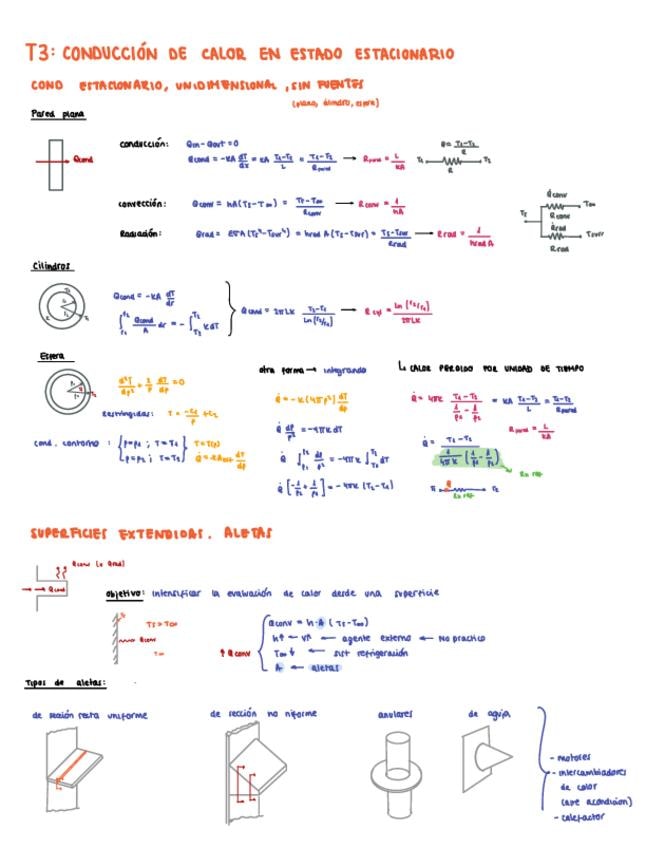 T3: CONDUCCIÓN DE CALOR EN ESTADO ESTACIONARIO
COND ESTACIONARIO, UNIDIMENSIONAL, SIN FUENTES
(plano, cilindro, esfera)
Pared plana
Qcond
conducción: Qin - Qout = 0
Qcond = -KA dT/dx = KA (T1-T2)/L = (T1-T2)/Rpared → Rpared = L/KA
Q = (T1-T2)/R
T1 R T2
convección: Qconv = hA(Ts-T∞) = (Ts-T∞)/Rconv → Rconv = 1/hA
Radiación: Qrad = εσA(Ts⁴-Tsur⁴) = hrad A(Ts-Tsur) = (Ts-Tsur)/Rrad → Rrad = 1/hrad A
Qconv
T∞
Rconv
Ts
Qrad
Tsurr
Rrad
Cilindros
Qcond = -KA dT/dr
∫r1 r2 Qcond/A dr = -∫T1 T2 K dT
Qcond = 2πLK (T1-T2)/Ln(r2/r1) → Rcyl = Ln(r2/r1)/2πLK
Esfera
otra forma → integrando
↳ CALOR PERDIDO POR UNIDAD DE TIEMPO
d²T/dρ² + 2/ρ dT/dρ = 0
Restringidas: T = -C1/ρ + C2
cond. contorno: { ρ=ρ1 ; T=T1
ρ=ρ2 ; T=T2 } T=T(ρ)
Q̇ = -K(4πρ²) dT/dρ
Q̇ dρ/ρ² = -4πK dT
Q̇ ∫ρ1 ρ2 dρ/ρ² = -4πK ∫T1 T2 dT
Q̇ [-1/ρ2 + 1/ρ1] = -4πK (T2-T1)
Q̇ = 4πK (T1-T2)/(1/ρ1 - 1/ρ2) = KA (T1-T2)/L = (T1-T2)/Rpared
Rpared = L/KA
Q̇ = (T1-T2)/(1/4πK (1/ρ1 - 1/ρ2))
T1 T2
SUPERFICIES EXTENDIDAS. ALETAS
Qconv (o Qrad)
Qcond
objetivo: Intensificar la evaluación de calor desde una superficie
Ts > T∞
Qconv
T∞
↑ Qconv
Qconv = h·A (Ts-T∞)
h↑ ← v↑ ← agente externo ← No práctico
T∞↓ ← sist refrigeración
A ← aletas
Tipos de aletas:
de sección recta uniforme
de sección no niforme
anulares
de aguja
- motores
- intercambiadores
de calor
(aire acondicion)
- calefactor